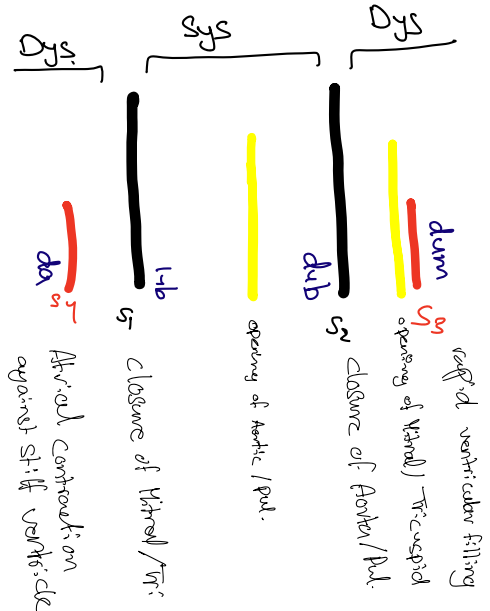 Dys
Sys
Dys
da
lub
dub
dum
S4
S1
S2
S3
Atrical contraction
against stiff ventricle
closure of Mitral/Tri
opening of Aortic/pul.
closure of Aorta/Pul.
opening of Mitral/Tricuspid
rapid ventricular filling